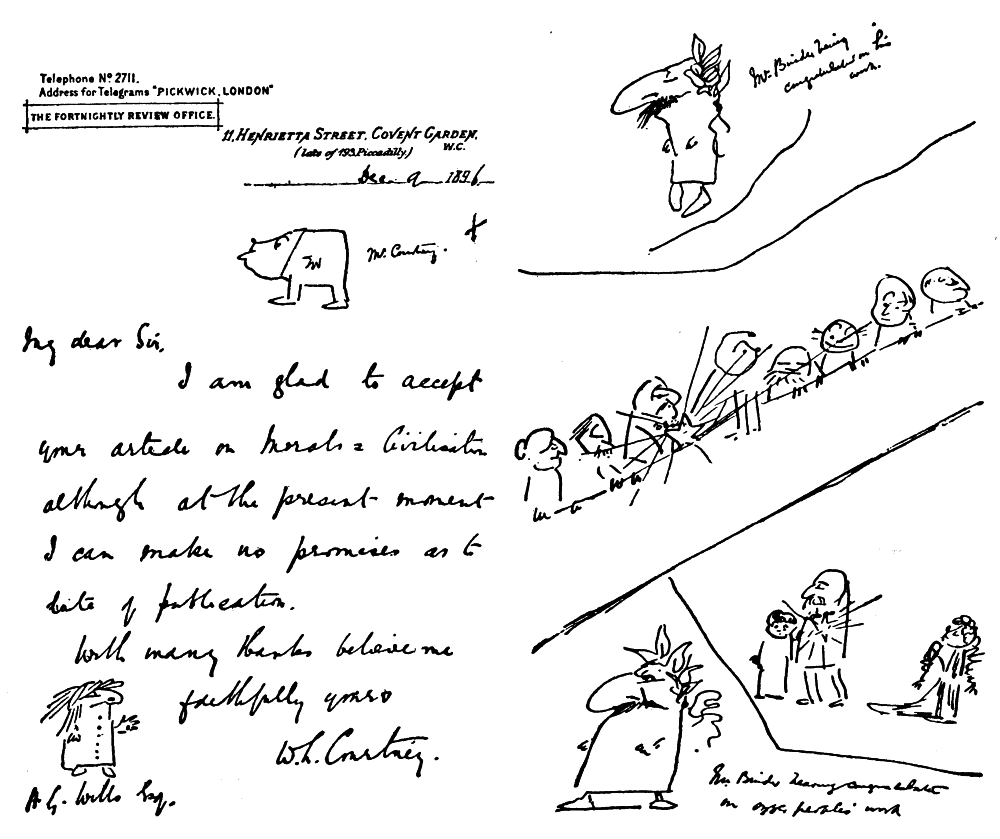 Telephone Nº 2711.
Address for Telegrams "PICKWICK, LONDON"
THE FORTNIGHTLY REVIEW OFFICE.
11, HENRIETTA STREET, COVENT GARDEN,
W.C.
(late of 193 Piccadilly)
Dec. 9 1896
Mr. Courtney.
My dear Sir,
I am glad to accept
your article on Morals & Civilisation
although at the present moment
I can make no promises as to
date of publication.
With many thanks believe me
faithfully yours
W. L. Courtney.
H. G. Wells Esq.
Mr. Binder being
congratulated on his
work.
Mr. Binder hearing congratulations
on other peoples' work